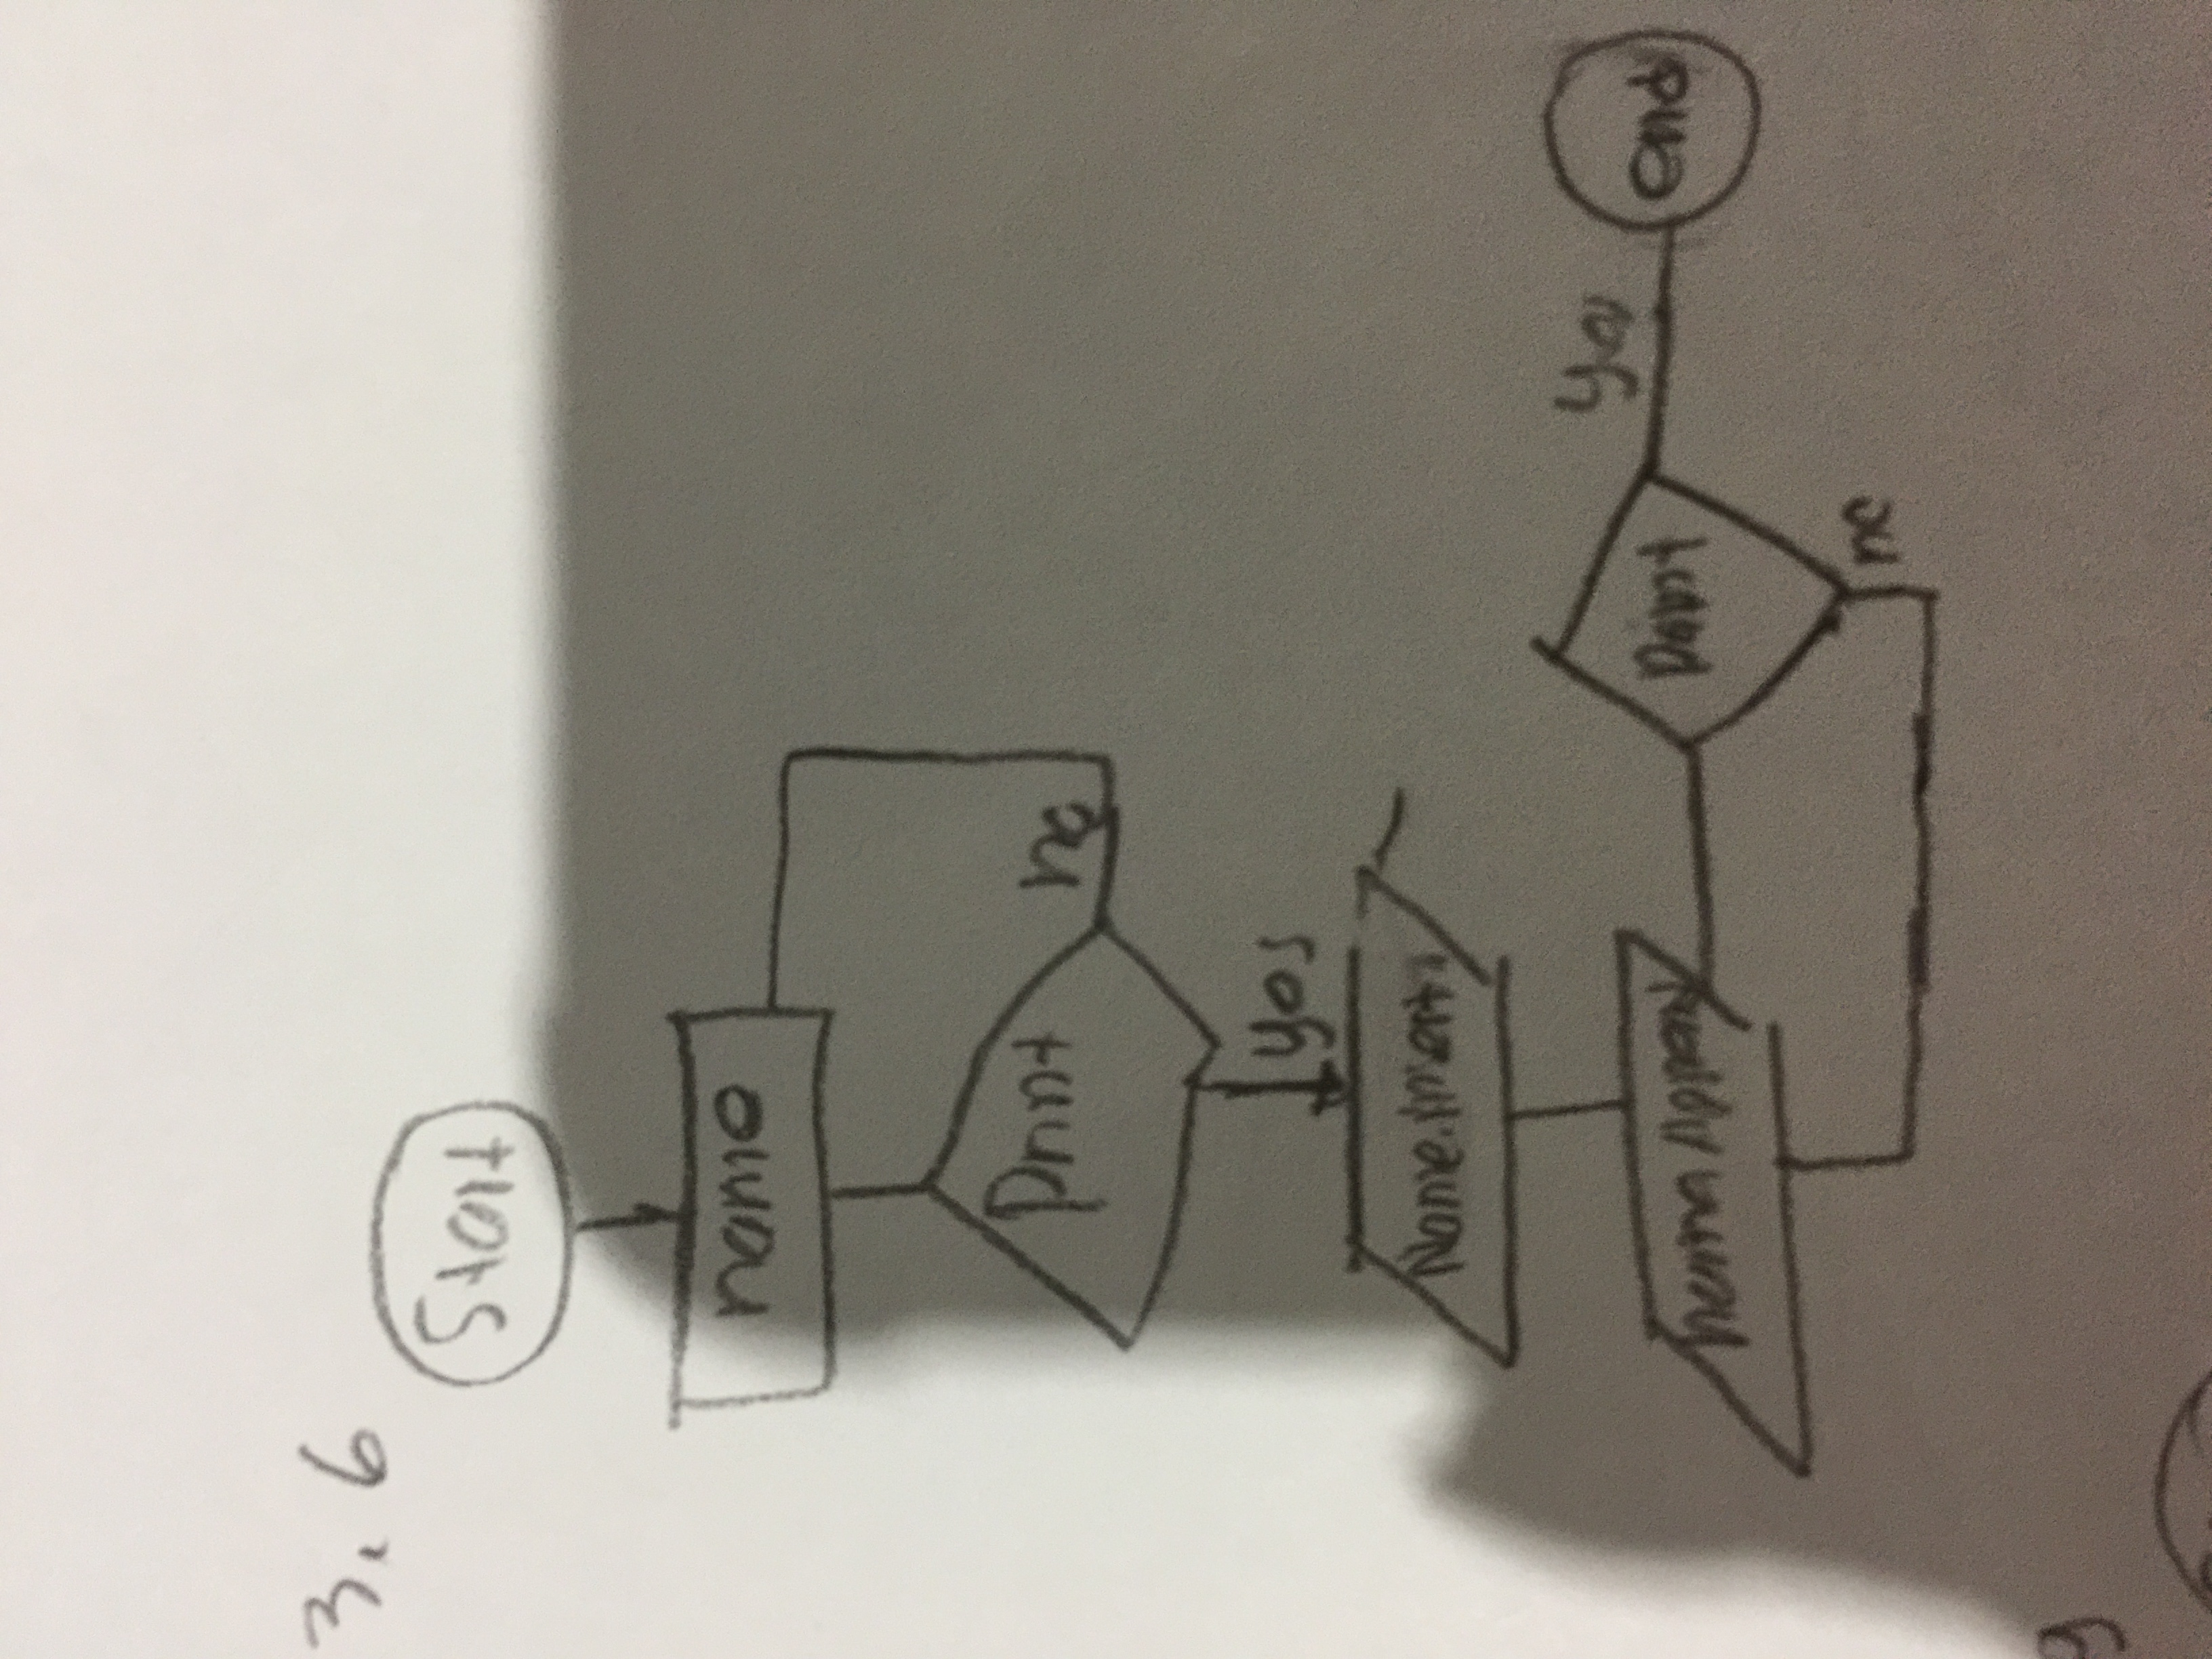 3. 6
Start
name
Print
no
yes
Name.insert
name Append
Print
yes
end
no
g